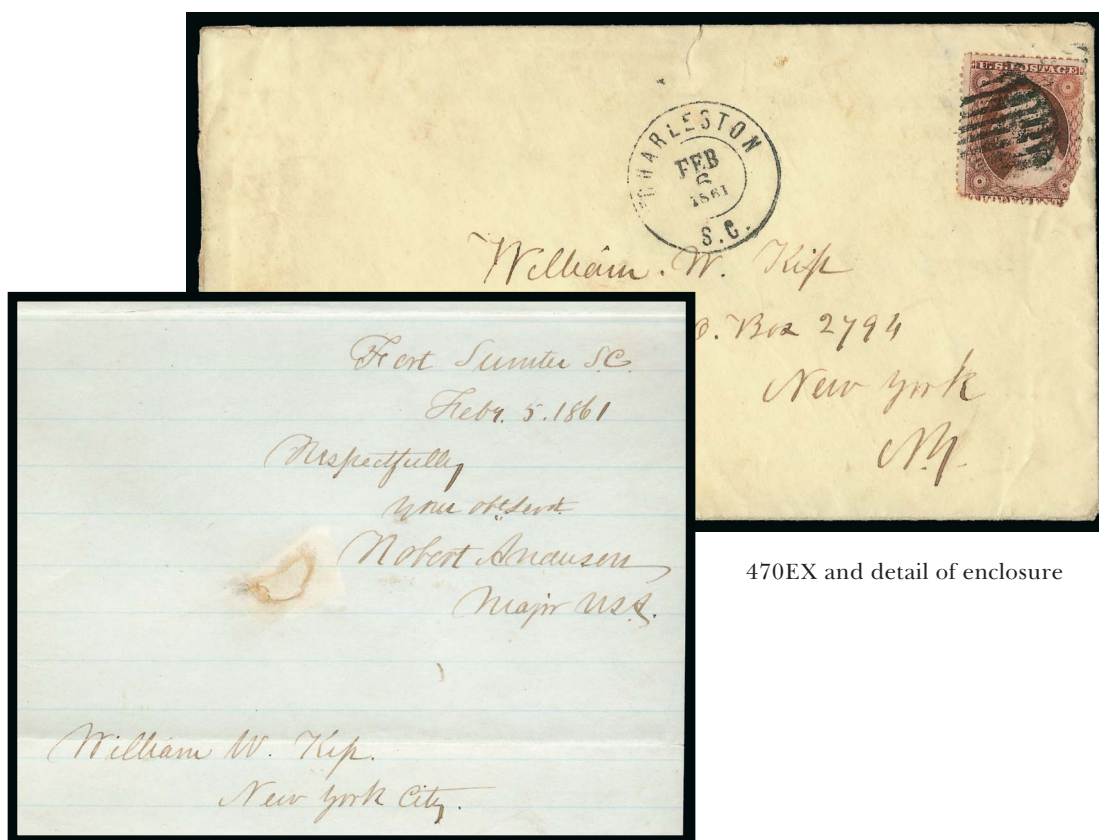 U.S. POSTAGE
CHARLESTON
FEB
6
1861
S.C.
William. W. Kip
O. Box 2794
New York
N.Y.
Fort Sumter S.C.
Feby. 5. 1861
Respectfully
your obt. Servt.
Robert Anderson
Major U.S.A.
William W. Kip.
New York City.
470EX and detail of enclosure